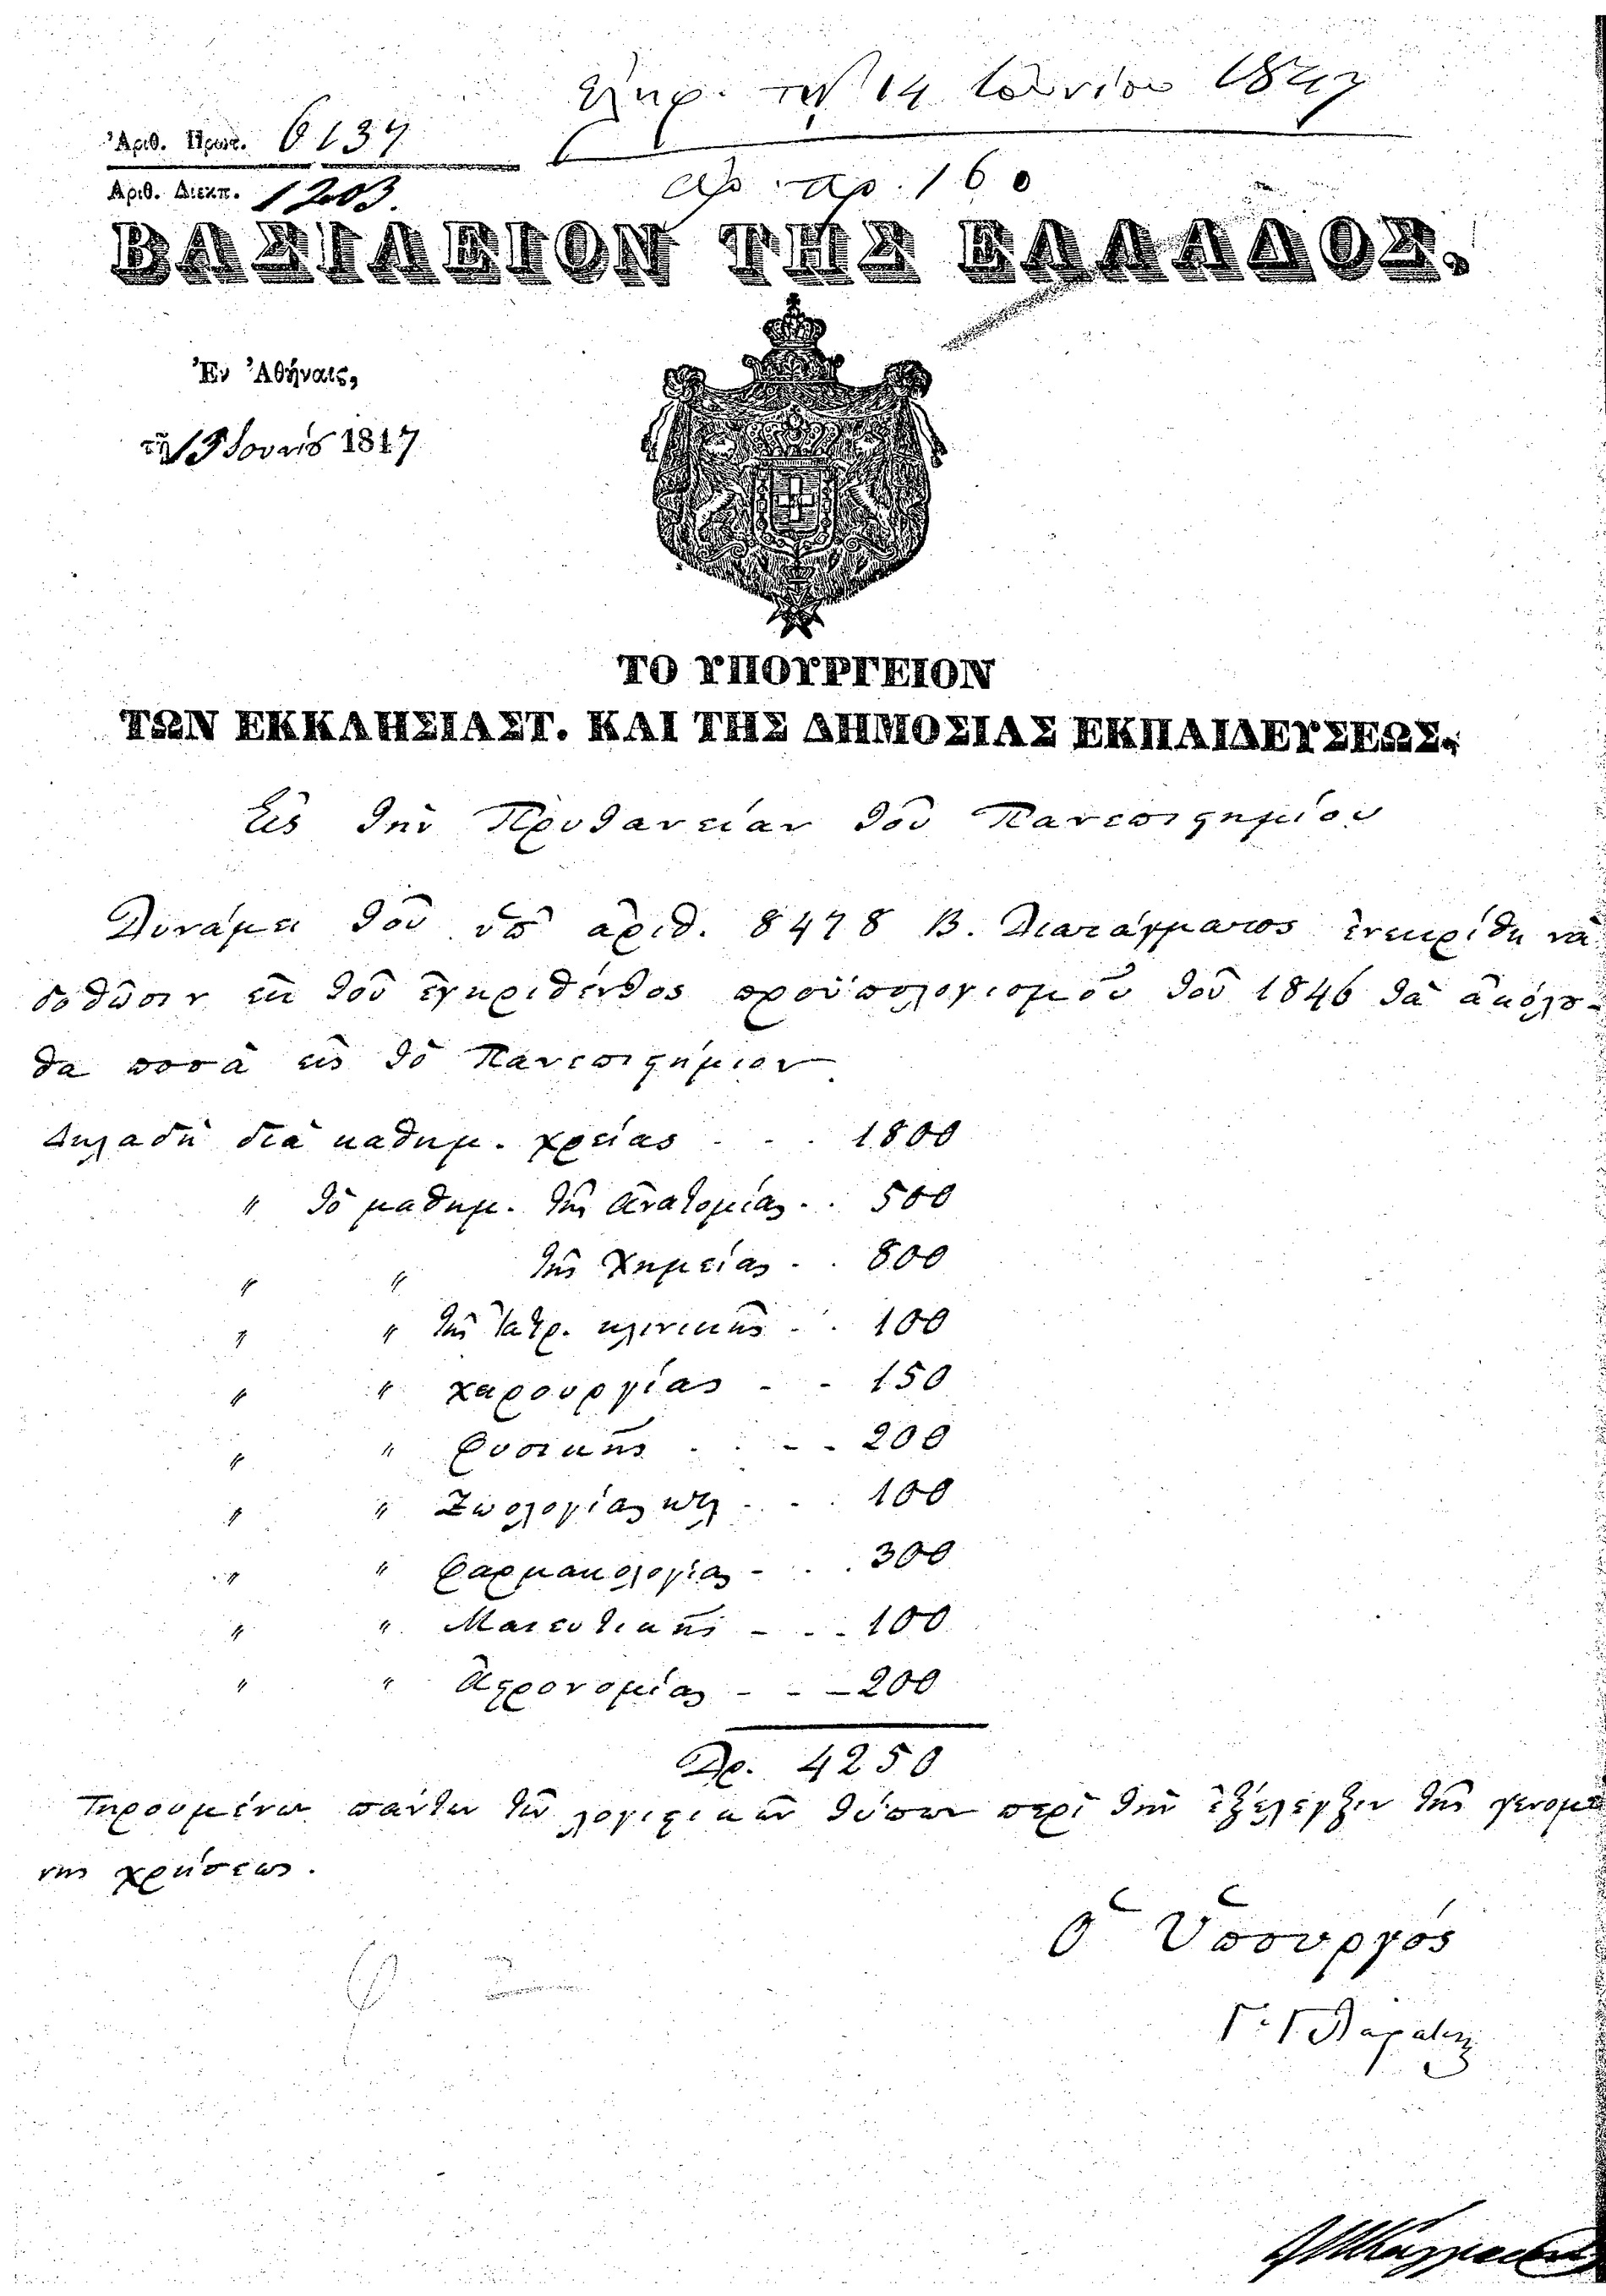 Ἐλήφ. τῇ 14 Ἰουνίου 1847
Ἀριθ. Πρωτ. 6137
Ἀριθ. Διεκπ. 1203.
ἀρ. πρ. 160
ΒΑΣΙΛΕΙΟΝ ΤΗΣ ΕΛΛΑΔΟΣ.
Ἐν Ἀθήναις,
τῇ 13 Ἰουνίου 1847
ΤΟ ΥΠΟΥΡΓΕΙΟΝ
ΤΩΝ ΕΚΚΛΗΣΙΑΣΤ. ΚΑΙ ΤΗΣ ΔΗΜΟΣΙΑΣ ΕΚΠΑΙΔΕΥΣΕΩΣ.
Εἰς τὴν Πρυτανείαν τοῦ Πανεπιστημίου
Δυνάμει τοῦ ὑπ' ἀριθ. 8478 Β. Διατάγματος ἐνεκρίθη νὰ
δοθῶσιν ἐκ τοῦ ἐγκριθέντος προϋπολογισμοῦ τοῦ 1846 τὰ ἀκόλου-
θα ποσὰ εἰς τὸ Πανεπιστήμιον.
Δηλαδὴ διὰ καθημ. χρείας - - . 1800
" τὸ μαθημ. τῆς Ἀνατομίας . . 500
" " τῆς Χημείας - . 800
" " τῆς Ἰατρ. κλινικῆς - . 100
" " χειρουργίας - - 150
" " φυσικῆς . . - - 200
" " Ζωολογίας κτλ - . . 100
" " φαρμακολογίας - . . 300
" " Μαιευτικῆς - . - 100
" " Ἀστρονομίας - - - 200
Δρ. 4250
Τηρουμένων πάντων τῶν λογιστικῶν τύπων περὶ τὴν ἐξέλεγξιν τῆς γενομέ
νης χρήσεως.
Ὁ Ὑπουργός
Γ. Γλαράκης